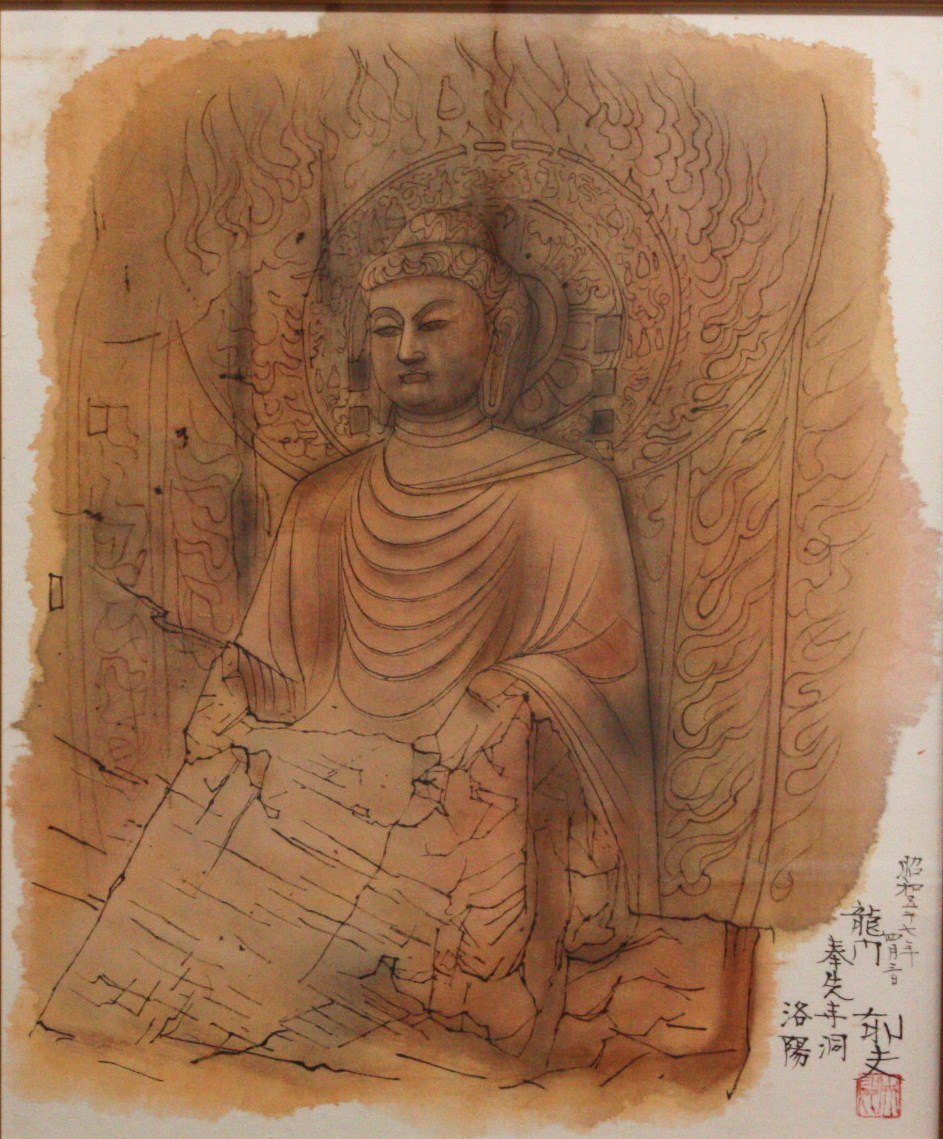 昭和五十七年
四月三日
龍門
奉先寺洞
洛陽